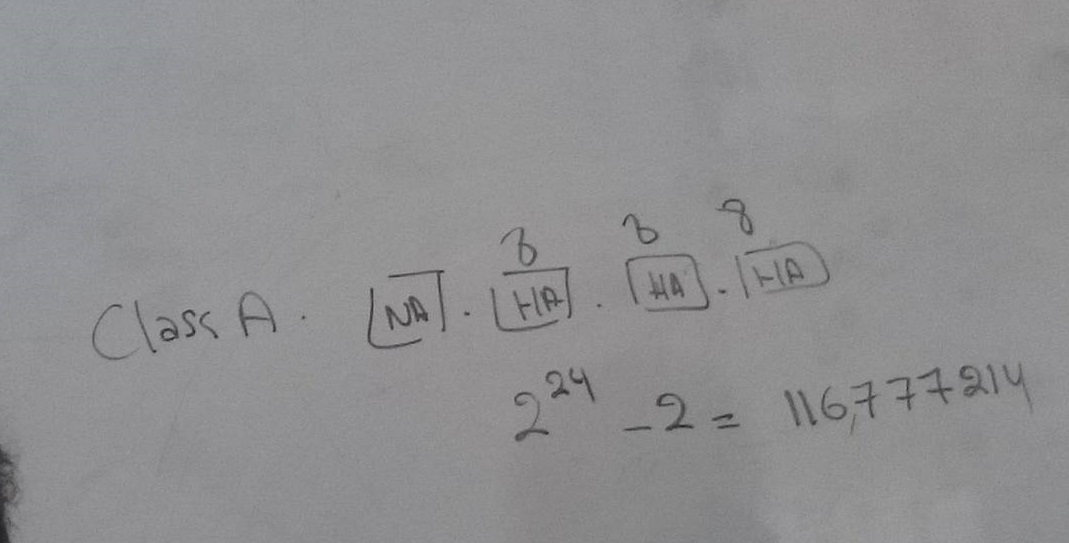 8 8 8
Class A. NA . HA . HA . HA
2^24 - 2 = 116,777214